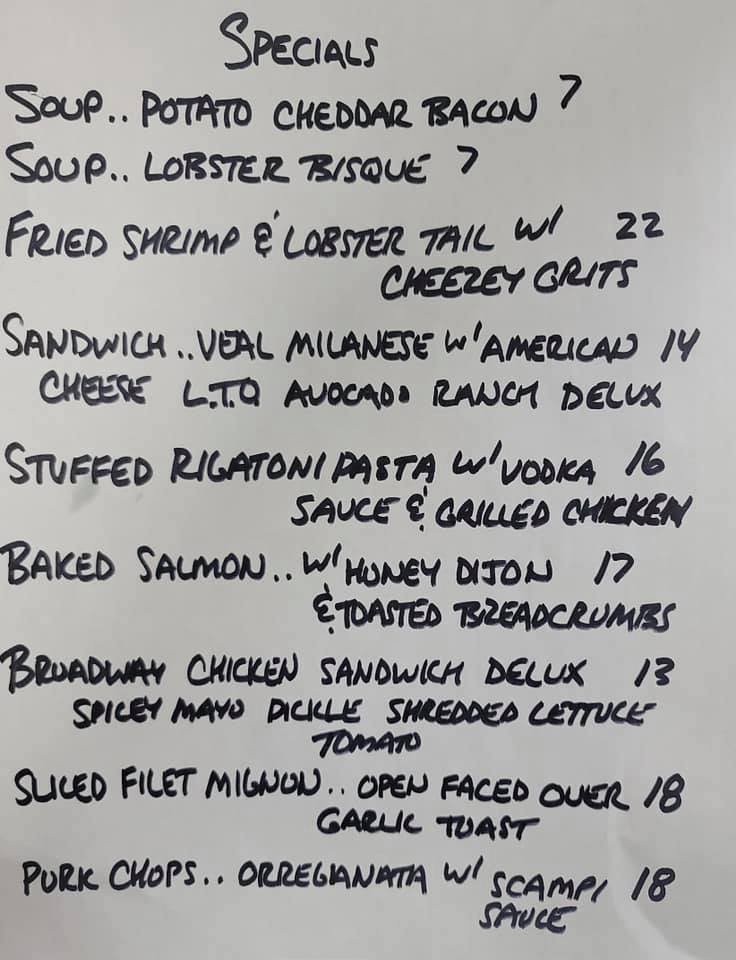 SPECIALS
SOUP.. POTATO CHEDDAR BACON 7
SOUP.. LOBSTER BISQUE 7
FRIED SHRIMP & LOBSTER TAIL W/ 22
CHEEZEY GRITS
SANDWICH.. VEAL MILANESE W/ AMERICAN 14
CHEESE L.T.O AVOCADO RANCH DELUX
STUFFED RIGATONI PASTA W/ VODKA 16
SAUCE & GRILLED CHICKEN
BAKED SALMON.. W/ HONEY DIJON 17
& TOASTED BREADCRUMBS
BROADWAY CHICKEN SANDWICH DELUX 13
SPICEY MAYO PICKLE SHREDDED LETTUCE
TOMATO
SLICED FILET MIGNON.. OPEN FACED OVER 18
GARLIC TOAST
PORK CHOPS.. ORREGIANATA W/ SCAMPI 18
SAUCE